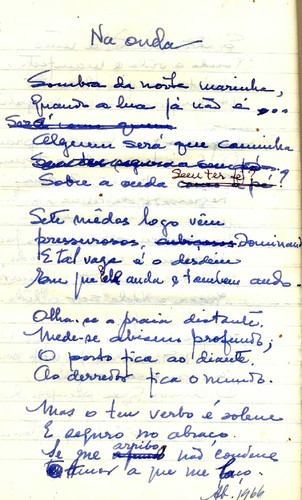 Na onda
Sombra da noite marinha,
Quando a lua já não é...
Será como quem
Alguem será que caminha
Sobre a onda sem ter pé?
Sete mêdos logo vêm
pressurosos, dominando
E tal vaga é o desdem
Em que anda e tambem ando.
Olha-se a praia distante.
Mede-se abismo profundo;
O porto fica ao diante.
Ao derredor fica o mundo.
Mas o teu verbo é solene
E seguro no abraço.
Se me arribo não condene
amor a que me faço.
1966